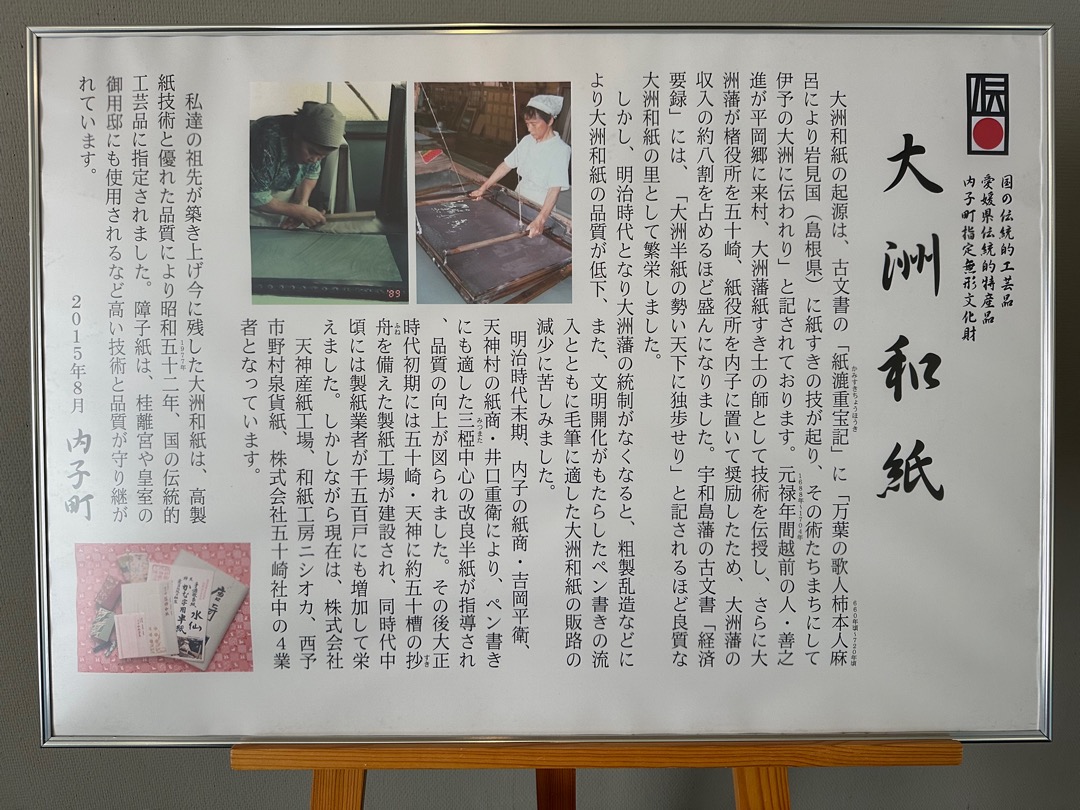 伝
国の伝統的工芸品
愛媛県伝統的特産品
内子町指定無形文化財
大洲和紙
大洲和紙の起源は、古文書の「紙漉重宝記」に「万葉の歌人柿本人麻
かみすきちょうほうき
660年頃-720年頃
呂により岩見国（島根県）に紙すきの技が起り、その術たちまちにして
伊予の大洲に伝われり」と記されております。元禄年間越前の人・善之
1688年-1704年
進が平岡郷に来村、大洲藩紙すき士の師として技術を伝授し、さらに大
洲藩が楮役所を五十崎、紙役所を内子に置いて奨励したため、大洲藩の
収入の約八割を占めるほど盛んになりました。宇和島藩の古文書「経済
要録」には、「大洲半紙の勢い天下に独歩せり」と記されるほど良質な
大洲和紙の里として繁栄しました。
しかし、明治時代となり大洲藩の統制がなくなると、粗製乱造などに
より大洲和紙の品質が低下、また、文明開化がもたらしたペン書きの流
入とともに毛筆に適した大洲和紙の販路の
減少に苦しみました。
明治時代末期、内子の紙商・吉岡平衛、
天神村の紙商・井口重衛により、ペン書き
にも適した三椏中心の改良半紙が指導され
みつまた
、品質の向上が図られました。その後大正
時代初期には五十崎・天神に約五十槽の抄
すき
舟を備えた製紙工場が建設され、同時代中
ふね
頃には製紙業者が千五百戸にも増加して栄
えました。しかしながら現在は、株式会社
天神産紙工場、和紙工房ニシオカ、西予
市野村泉貨紙、株式会社五十崎社中の４業
者となっています。
私達の祖先が築き上げ今に残した大洲和紙は、高製
紙技術と優れた品質により昭和五十二年、国の伝統的
1977年
工芸品に指定されました。障子紙は、桂離宮や皇室の
御用邸にも使用されるなど高い技術と品質が守り継が
れています。
2015年8月 内子町
'89
水仙